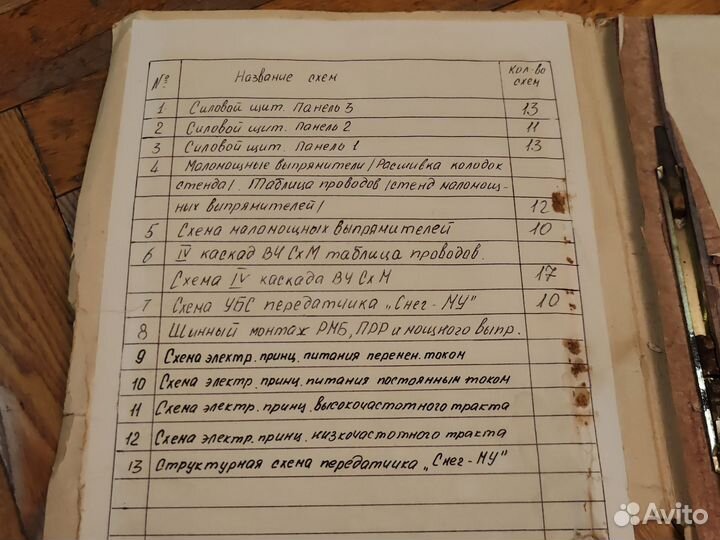 № Название схем Кол-во схем
1 Силовой щит. Панель 3 13
2 Силовой щит. Панель 2 11
3 Силовой щит. Панель 1 13
4 Маломощные выпрямители / Расшивка колодок
стенда/. Таблица проводов /стенд маломощ-
ных выпрямителей/ 12
5 Схема маломощных выпрямителей 10
6 IV каскад ВЧ СхМ таблица проводов.
Схема IV каскада ВЧ СхМ 17
7 Схема УБС передатчика „Снег-МУ" 10
8 Шинный монтаж РМБ, ПРР и мощного выпр.
9 Схема электр. принц. питания перемен. током
10 Схема электр. принц. питания постоянным током
11 Схема электр. принц. высокочастотного тракта
12 Схема электр. принц. низкочастотного тракта
13 Структурная схема передатчика „Снег-МУ"
Avito